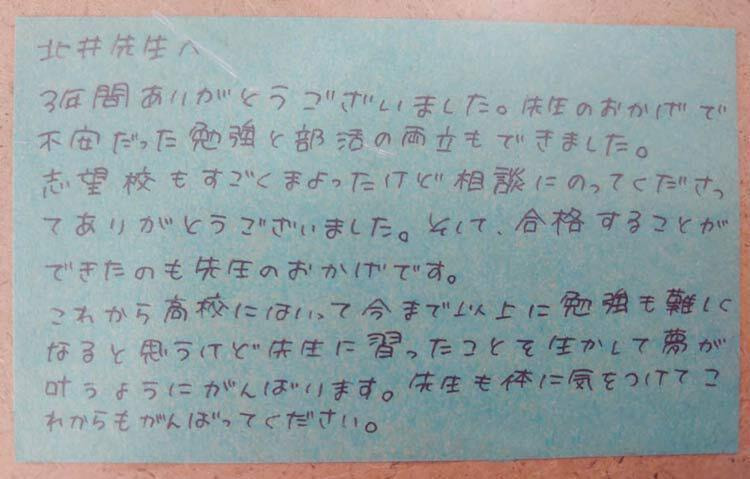 北井先生へ
3年間ありがとうございました。先生のおかげで
不安だった勉強と部活の両立もできました。
志望校もすごくまよったけど相談にのってくださっ
てありがとうございました。そして、合格することが
できたのも先生のおかげです。
これから高校にはいって今まで以上に勉強も難しく
なると思うけど先生に習ったことを生かして夢が
叶うようにがんばります。先生も体に気をつけてこ
れからもがんばってください。